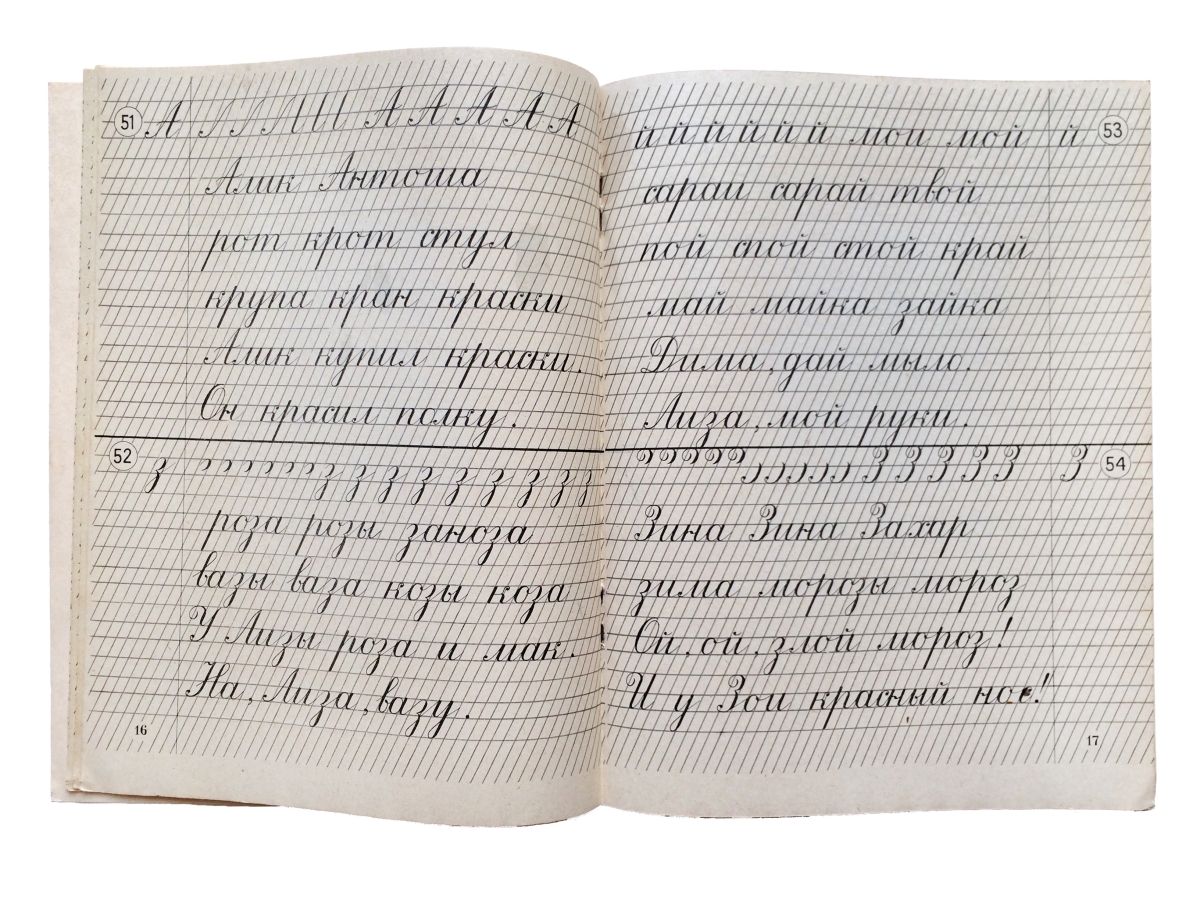 51 А А А А А А
Алик Антоша
рот крот стул
крупа кран краски
Алик купил краски.
Он красил полку.
52 з з з з з з з з з
роза розы заноза
вазы ваза козы коза
У Лизы роза и мак.
На, Лиза, вазу.
16
й й й й й й мои мой й 53
сараи сарай твой
пой спой стой край
май майка зайка
Дима, дай мыло.
Лиза, мой руки.
З З З З З З 54
Зина Зина Захар
зима морозы мороз
Ой, ой, злой мороз!
И у Зои красный нос!
17